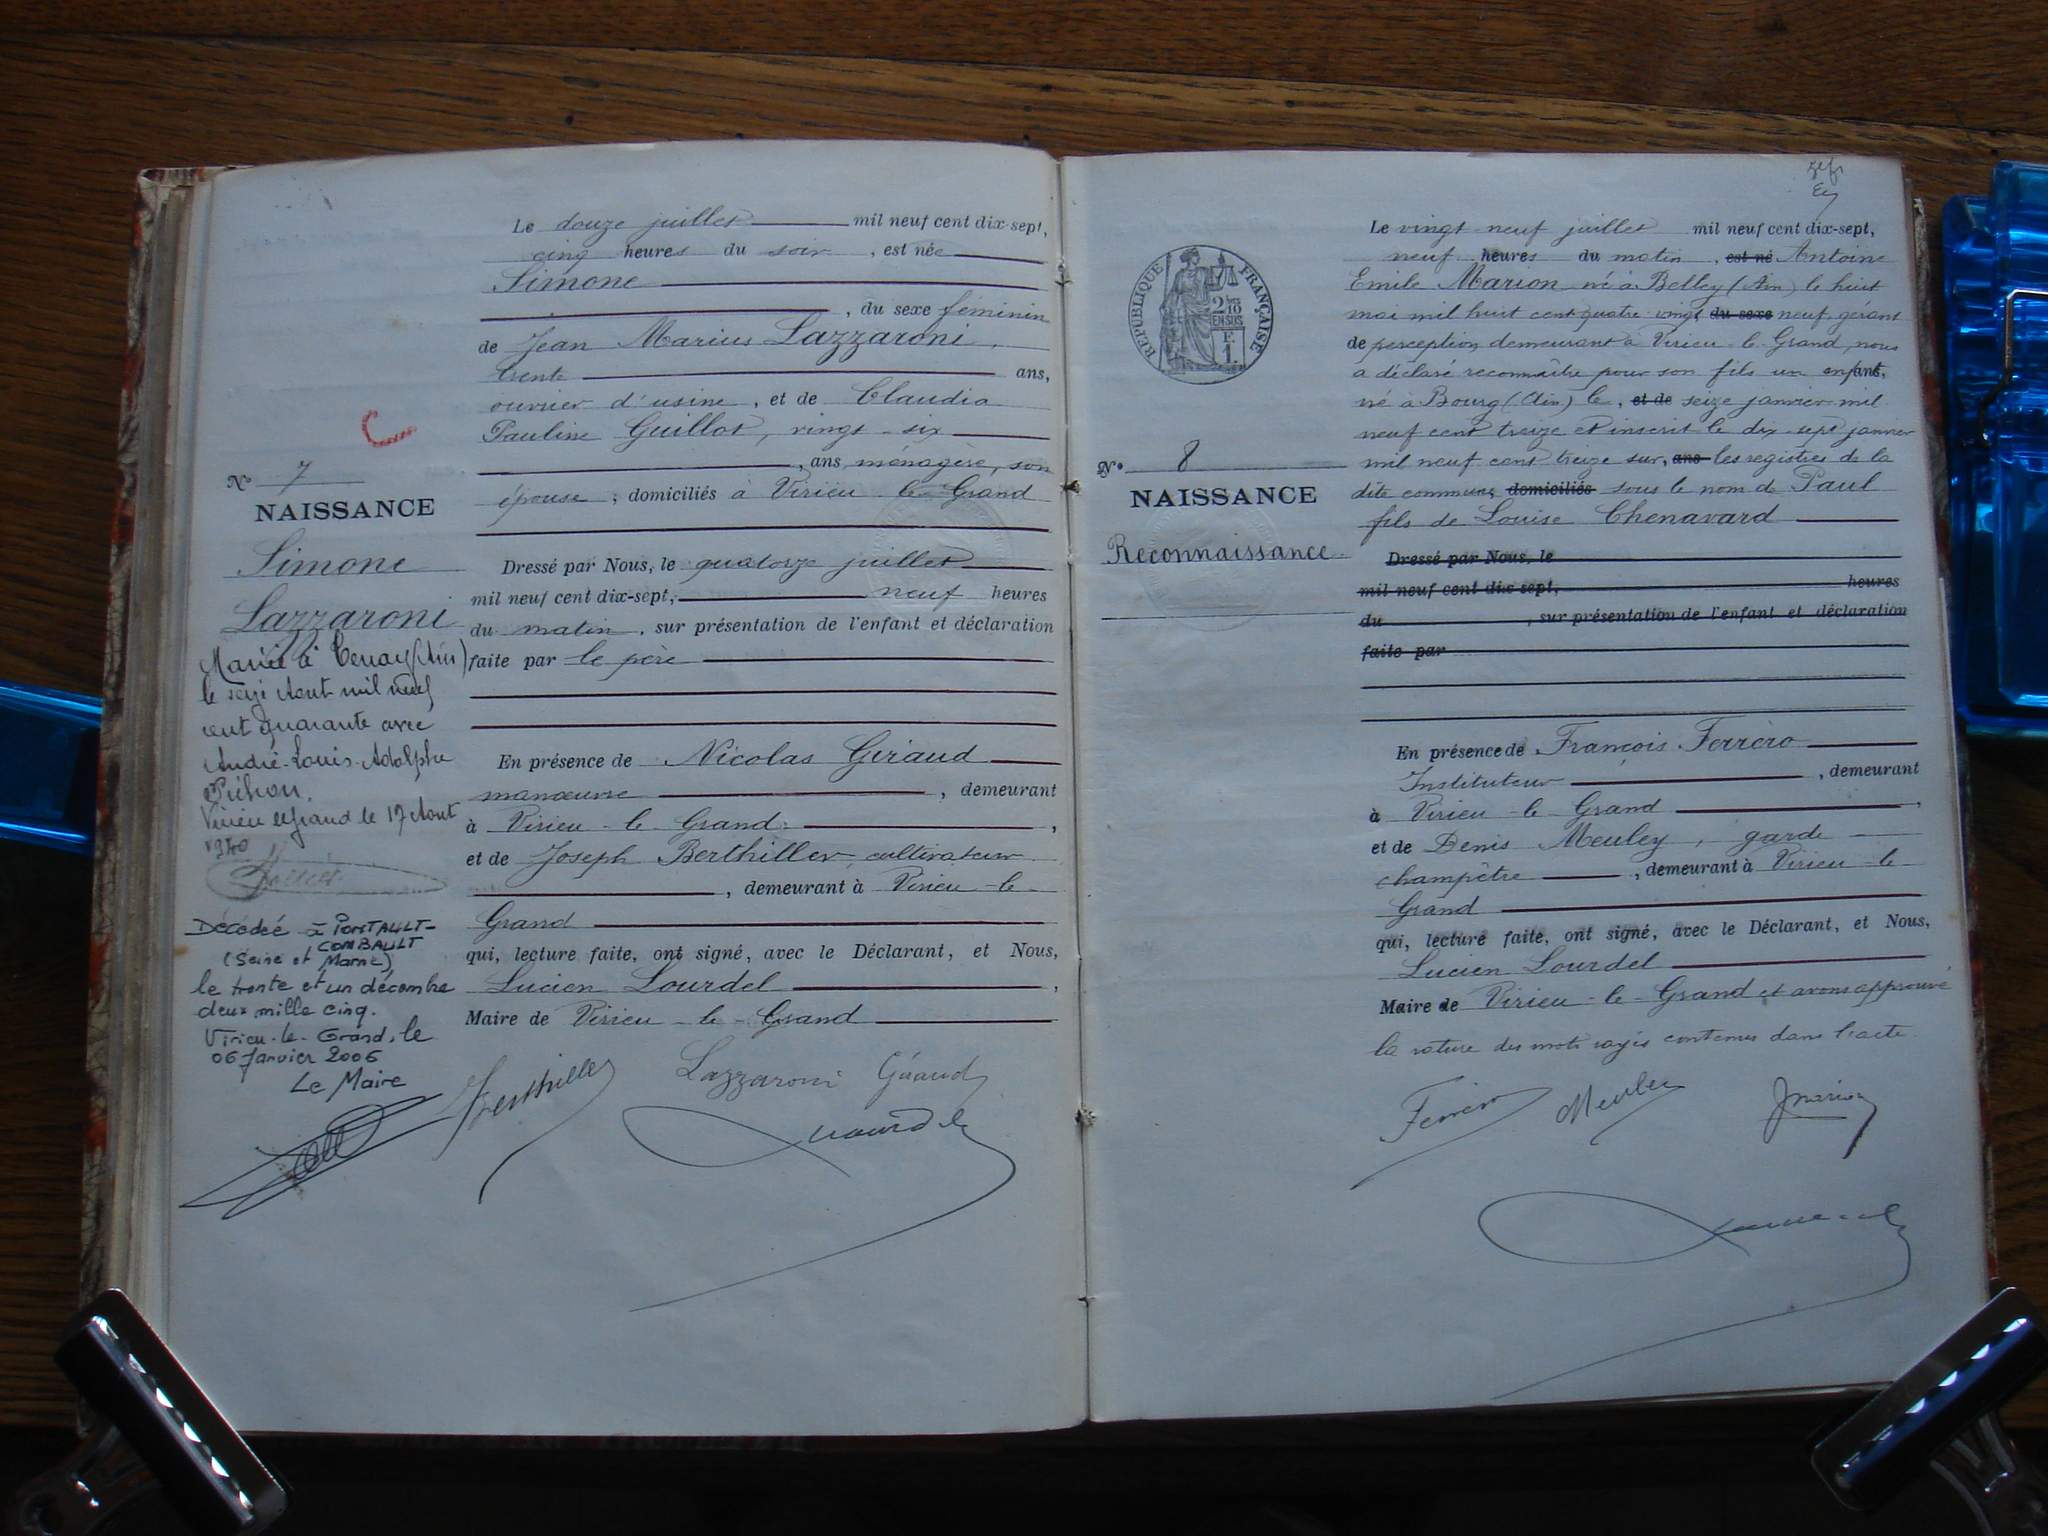 Le douze juillet mil neuf cent dix-sept,
cinq heures du soir, est née
Simone
, du sexe féminin
de Jean Marius Lazzaroni,
trente ans,
ouvrier d'usine, et de Claudia
Pauline Guillot, vingt-six
, ans, ménagère, son
épouse, domiciliés à Virieu-le-Grand
Dressé par Nous, le quatorze juillet
mil neuf cent dix-sept, neuf heures
du matin, sur présentation de l'enfant et déclaration
faite par le père
En présence de Nicolas Geraud
manœuvre, demeurant
à Virieu-le-Grand,
et de Joseph Berthiller, cultivateur
, demeurant à Virieu-le-
Grand
qui, lecture faite, ont signé, avec le Déclarant, et Nous,
Lucien Lourdel,
Maire de Virieu-le-Grand
Berthiller Lazzaroni Géraud
Lourdel
C
N° 7
NAISSANCE
Simone
Lazzaroni
Mariée à Tenay (Ain)
le seize Aout mil neuf
cent quarante avec
André-Louis-Adolphe
Pichon.
Virieu le Grand le 17 Aout
1940
Décédée à PONTAULT-
COMBAULT
(Seine et Marne)
le trente et un décembre
deux mille cinq.
Virieu-le-Grand, le
06 Janvier 2006
Le Maire
RÉPUBLIQUE FRANÇAISE
2/10
EN SUS
F.
1.
N° 8
NAISSANCE
Reconnaissance
Le vingt-neuf juillet mil neuf cent dix-sept,
neuf heures du matin, est né Antoine
Emile Marion né à Belley (Ain) le huit
mai mil huit cent quatre vingt du sexe neuf, gérant
de perception, demeurant à Virieu-le-Grand, nous
a déclaré reconnaître pour son fils un enfant,
né à Bourg (Ain) le, et de seize janvier mil
neuf cent treize et inscrit le dix-sept janvier
mil neuf cent treize sur, ans les registres de la
dite commune, domiciliés sous le nom de Paul
fils de Louise Chenavard
Dressé par Nous, le
mil neuf cent dix-sept, heures
du , sur présentation de l'enfant et déclaration
faite par
En présence de François Ferrero
Instituteur, demeurant
à Virieu-le-Grand,
et de Denis Meuley, garde
champêtre, demeurant à Virieu-le-
Grand
qui, lecture faite, ont signé, avec le Déclarant, et Nous,
Lucien Lourdel
Maire de Virieu-le-Grand et avons approuvé
la rature des mots rayés contenus dans l'acte.
Ferrero Meuley Marion